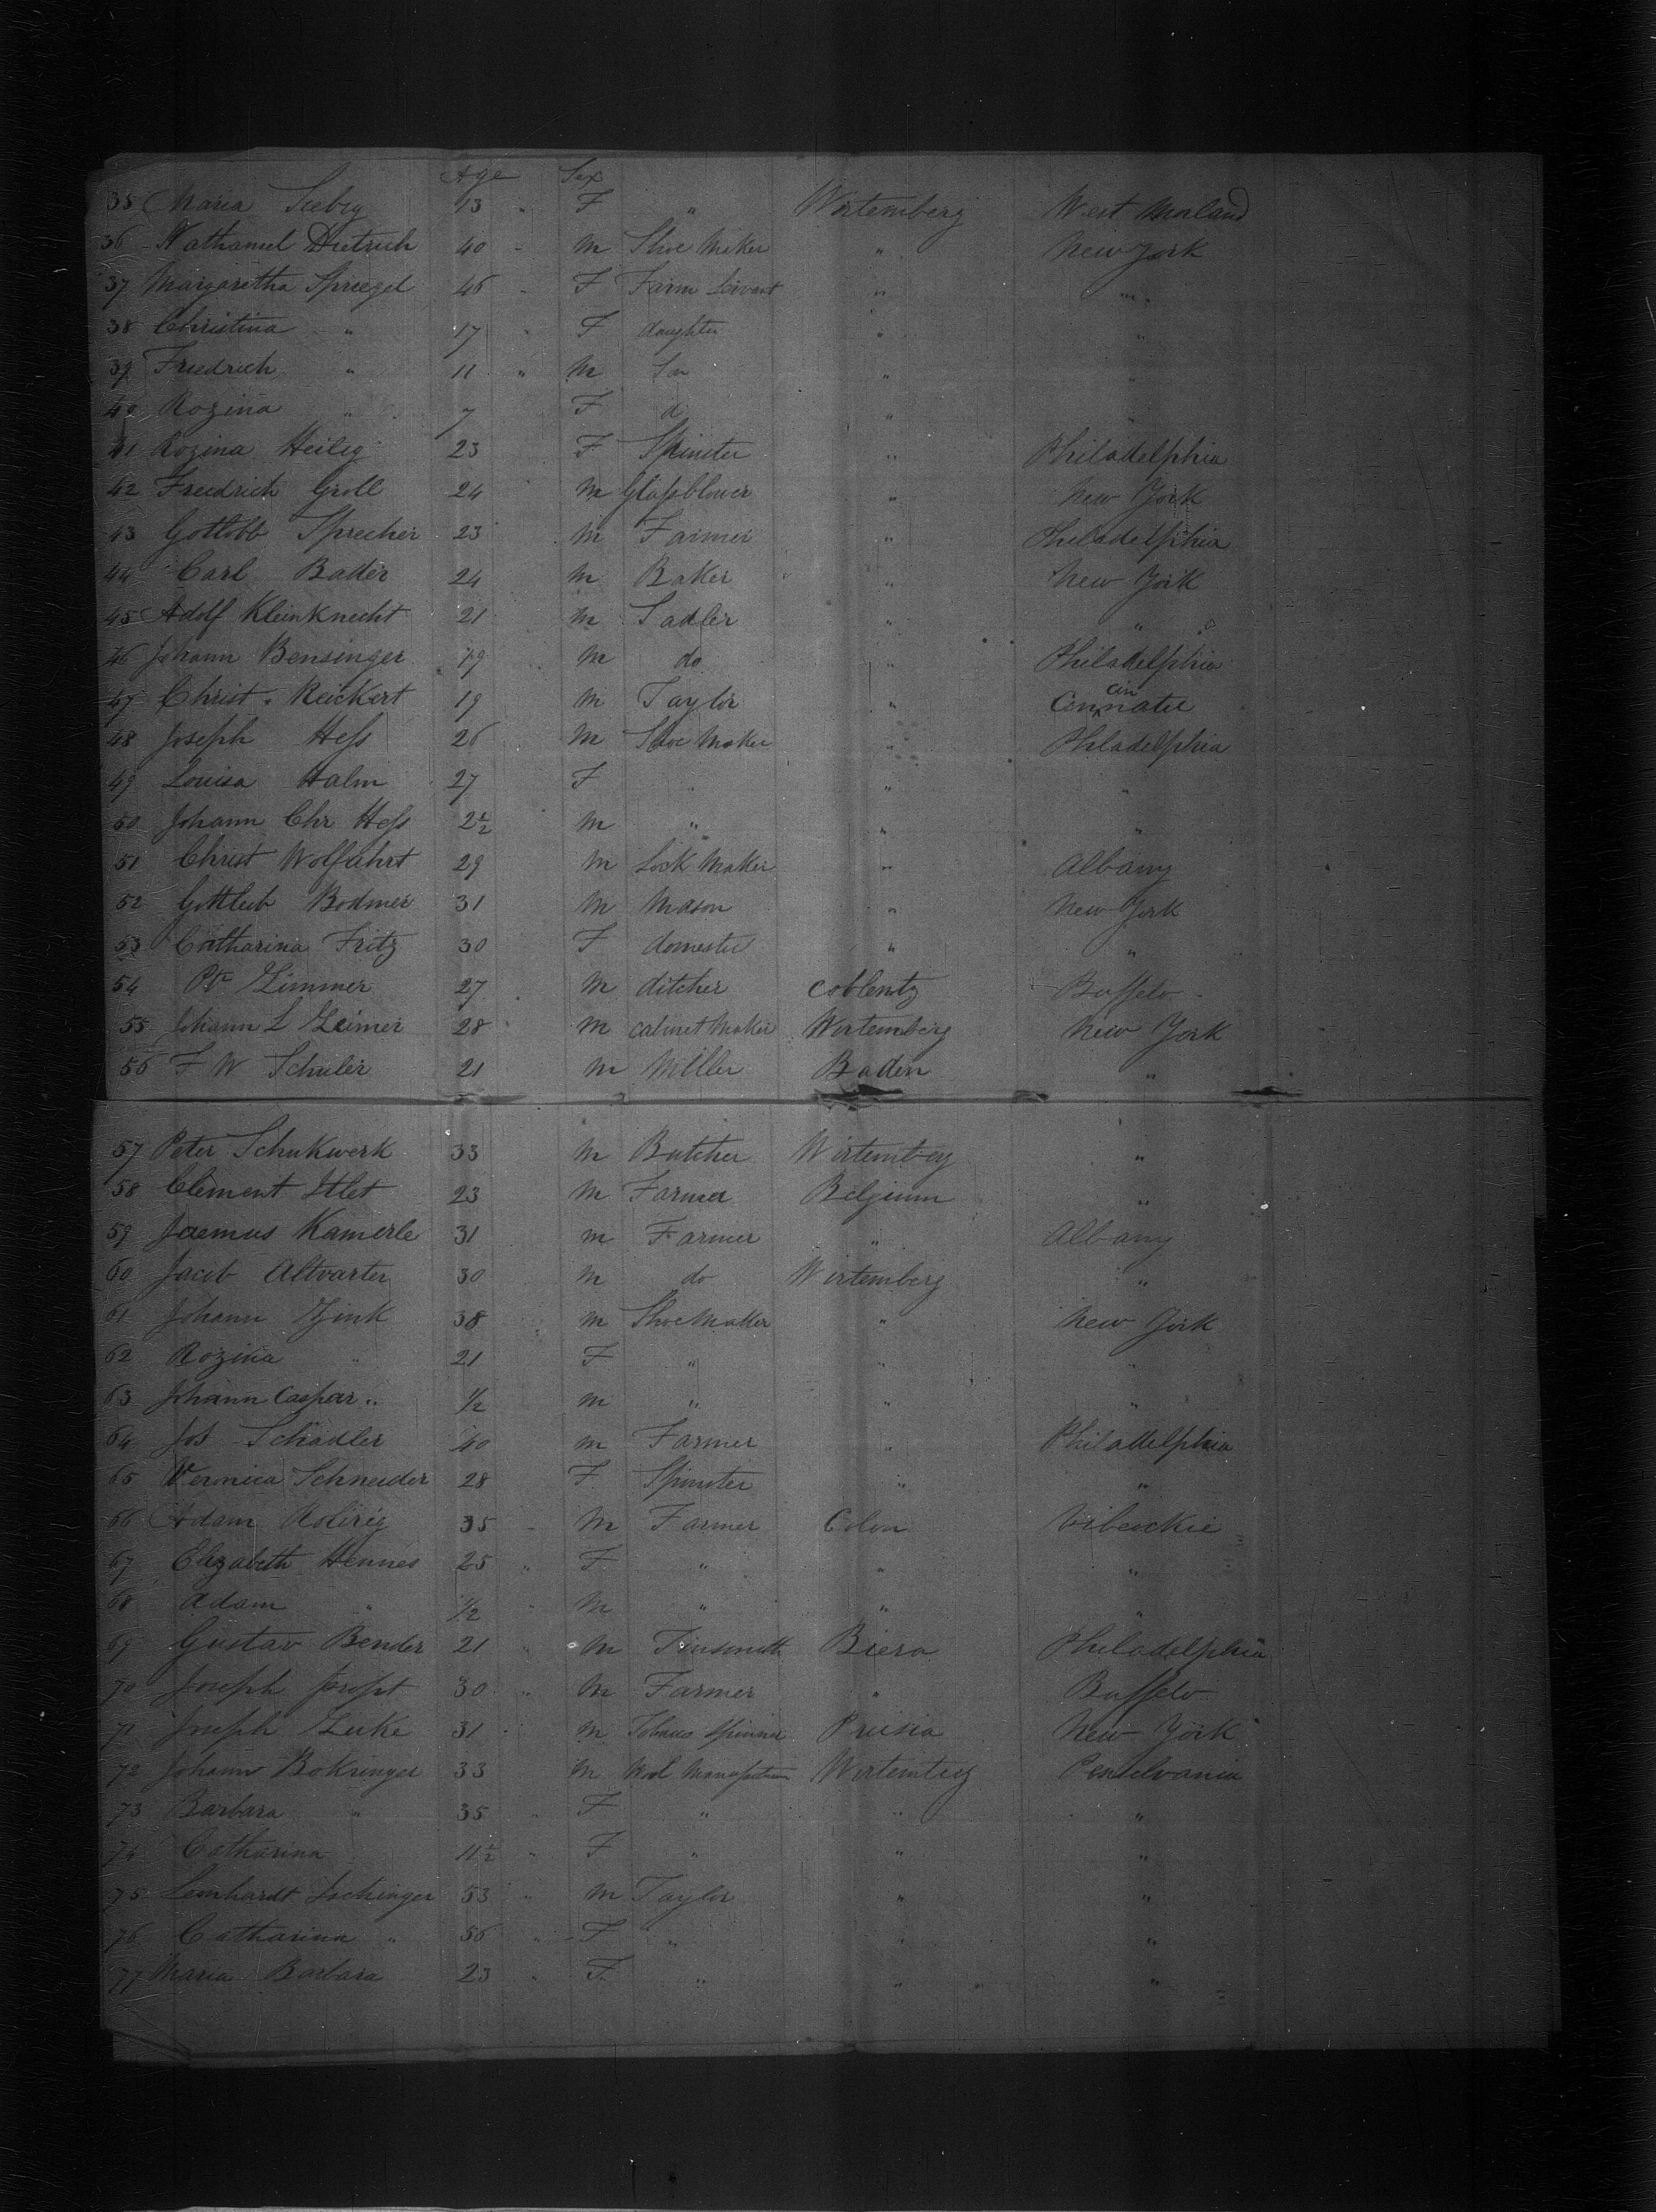 Age Sex
35 Maria Seebig 13 " F " Wirtemberg West Morland
36 Nathaniel Dietrich 40 " M Shoe Maker " New York
37 Margaretha Spriegel 46 " F Farm Servant " "
38 Christina " 17 " F daughter " "
39 Friedrich " 11 " M Son " "
40 Rozina " 7 F d " "
41 Rozina Heileg 23 F Spinster " Philadelphia
42 Freedrich Groll 24 M Glassblower " New York
43 Gottobb Sprecher 23 M Farmer " Philadelphia
44 Carl Bader 24 M Baker " New York
45 Adolf Kleinknecht 21 M Sadler " "
46 Johann Bensinger 19 M do " Philadelphia
47 Christ. Reickert 19 M Taylor " Cincinnatee
48 Joseph Hess 26 M Shoe Maker " Philadelphia
49 Louisa Halm 27 F " " "
50 Johann Chr Hess 2½ M " " "
51 Christ Wolfahrt 29 M Lock Maker " Albany
52 Gottleeb Bodmer 31 M Mason " New York
53 Catharina Fritz 30 F domestic " "
54 Ptr Zimmer 27 M ditcher Coblentz Buffelo
55 Johann L Zeimer 28 M cabinet Maker Wirtemberg New York
56 F W Schuler 21 M Miller Baden "
57 Peter Schukwerk 33 M Butcher Wirtemberg "
58 Clement Stlet 23 M Farmer Belgium "
59 Kamerle 31 M Farmer " Albany
60 Jacob Altvarter 30 M do Wirtemberg "
61 Johann Zink 38 M Shoe Maker " New York
62 Rozina " 21 F " " "
63 Johann Caspar " ½ M " " "
64 Jos Schadler 40 M Farmer " Philadelphia
65 Veronica Schneider 28 F Spinster " "
66 Adam 35 M Farmer Colon
67 Elizabeth Hennes 25 " F " " "
68 Adam " ½ " M " " "
69 Gustav Bender 21 " M Tinsmith Philadelphia
70 Joseph 30 " M Farmer " Buffelo
71 Joseph Zuke 31 M Tobacco Spinner Prusia New York
72 Johann Bokringer 33 M Wool Wirtemberg Penselvania
73 Barbara " 35 " F " " "
74 Catharina 11½ " F " " "
75 Leonhardt Lochinger 53 " M Taylor " "
76 Catharina " 56 " F " " "
77 Maria Barbara 23 " F " " "